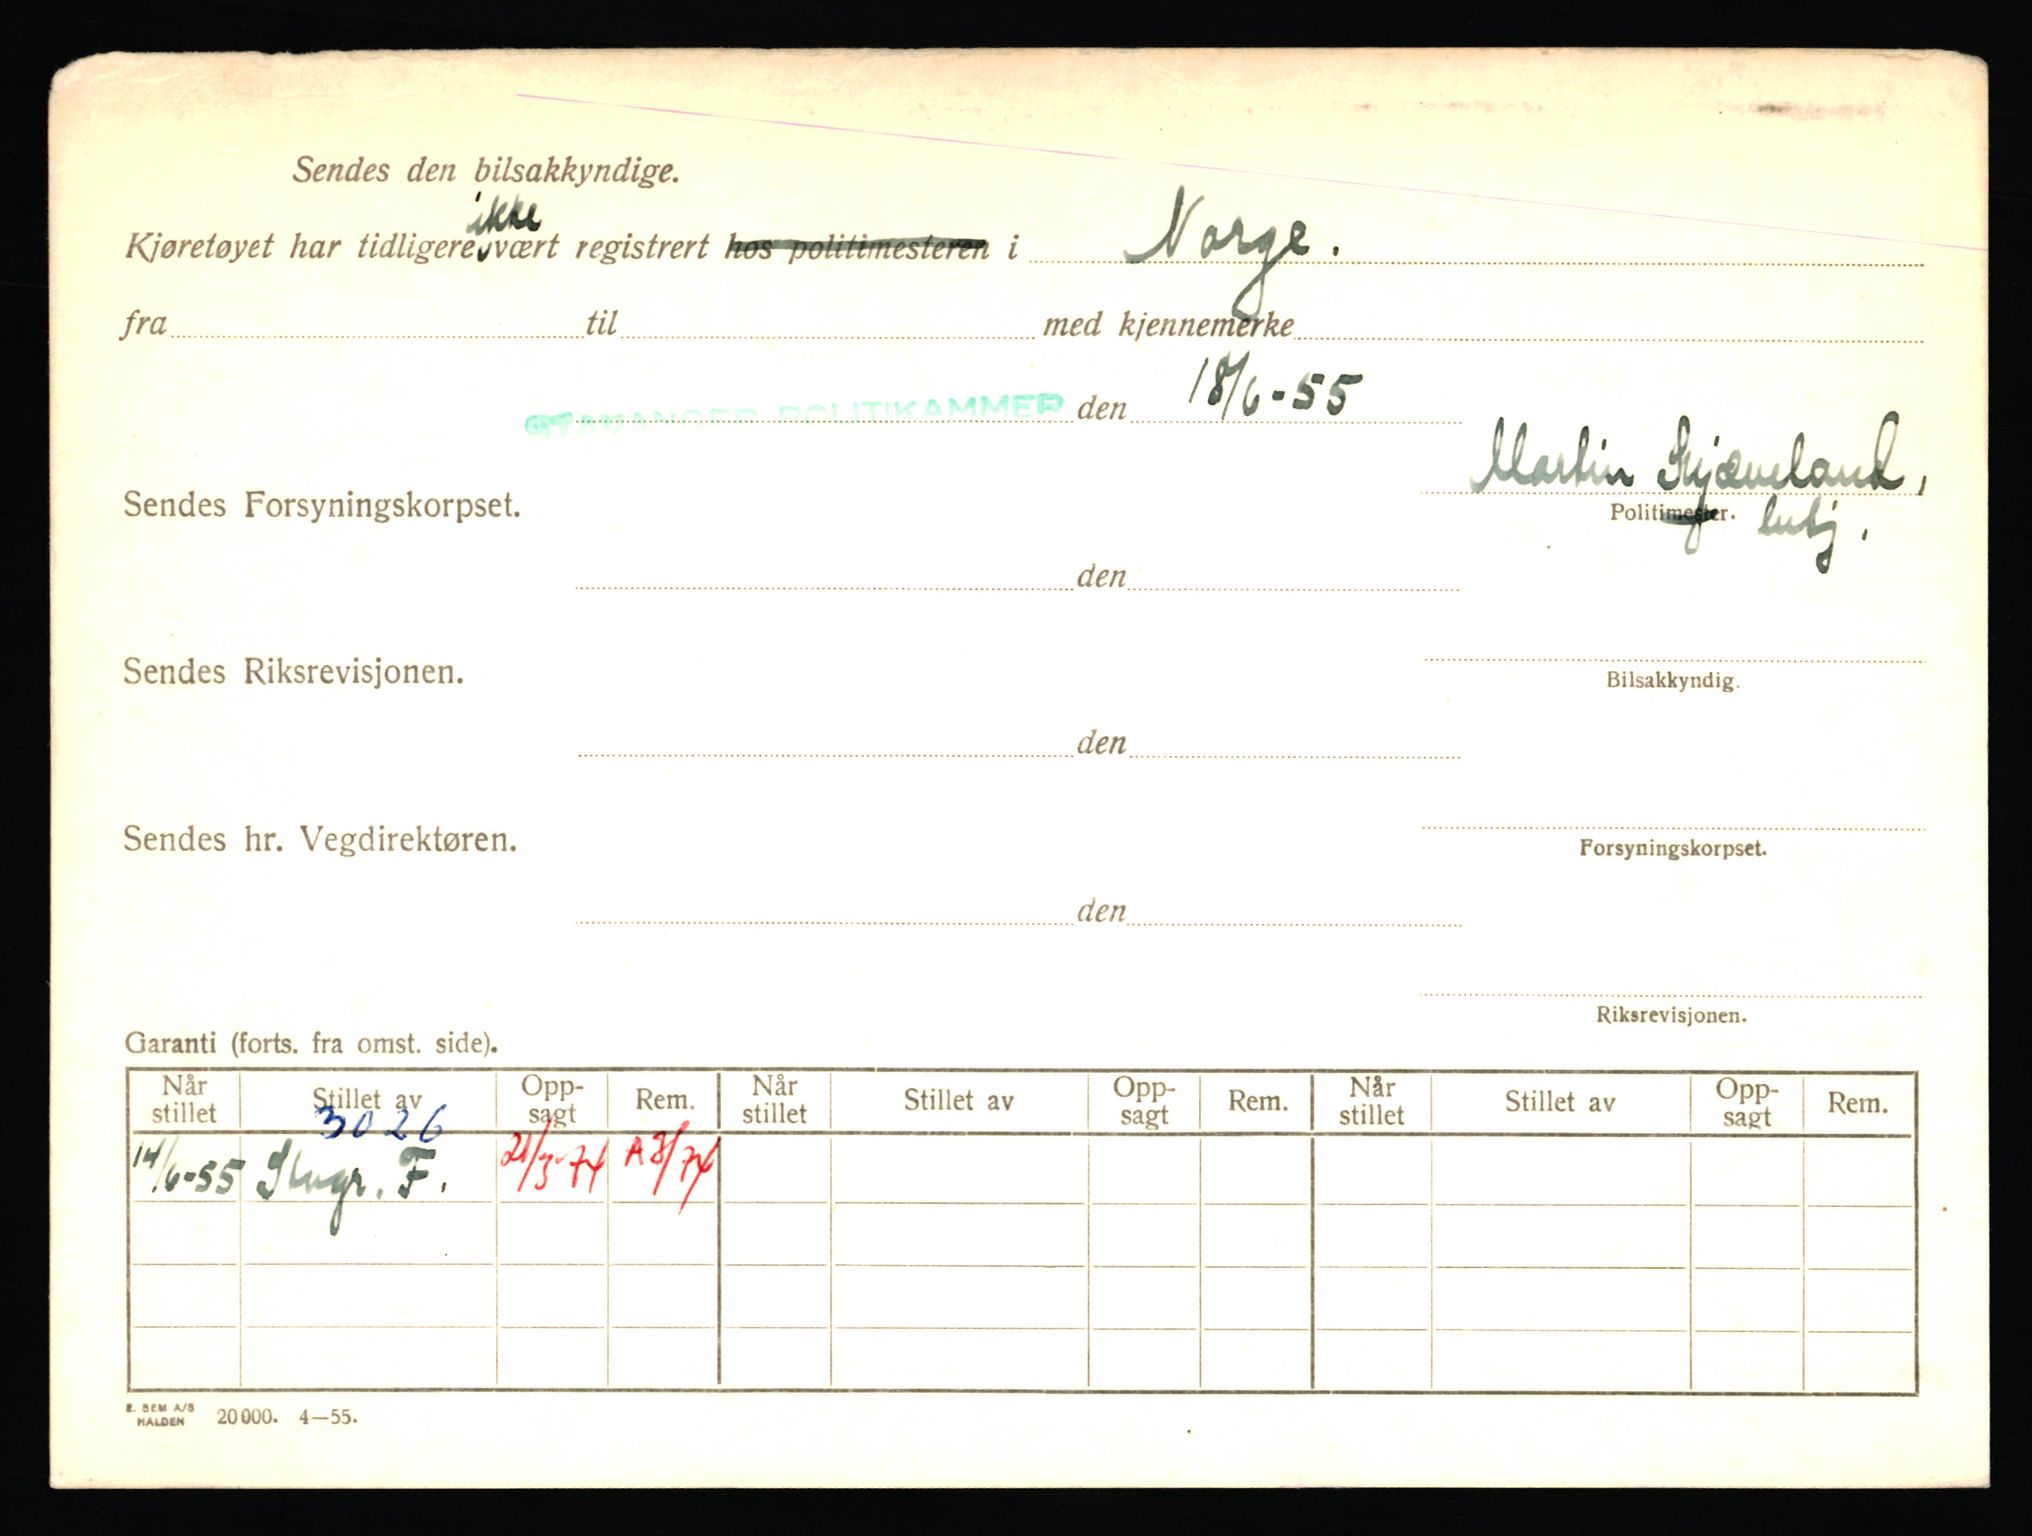 Sendes den bilsakkyndige.
ikke
Kjøretøyet har tidligere vært registrert hos politimesteren i Norge.
fra til med kjennemerke
STAVANGER POLITIKAMMER den 18/6-55
Martin Skjæveland,
Sendes Forsyningskorpset.
Politimester. betj.
den
Sendes Riksrevisjonen.
Bilsakkyndig.
den
Sendes hr. Vegdirektøren.
Forsyningskorpset.
den
Riksrevisjonen.
Garanti (forts. fra omst. side).
Når stillet Stillet av Opp-sagt Rem. Når stillet Stillet av Opp-sagt Rem. Når stillet Stillet av Opp-sagt Rem.
3026
14/6-55 F. 21/3-74 A8/74
E. SEM A/S
HALDEN 20000. 4—55.